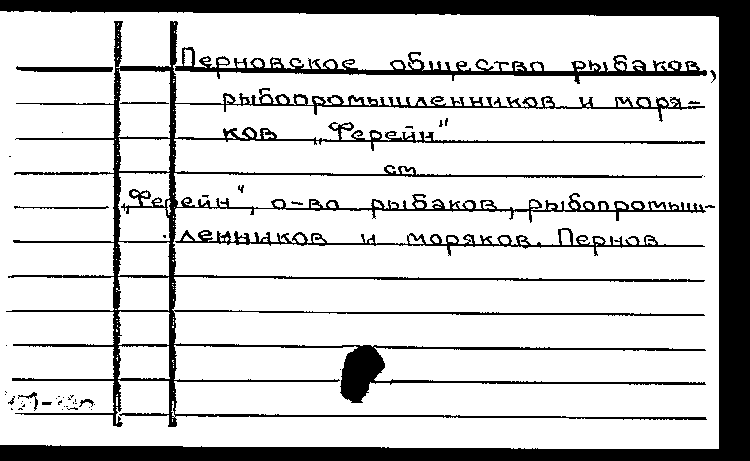 Перновское общество рыбаков,
рыбопромышленников и моря-
ков „Ферейн"
см
„Ферейн", о-во рыбаков, рыбопромыш-
ленников и моряков. Пернов